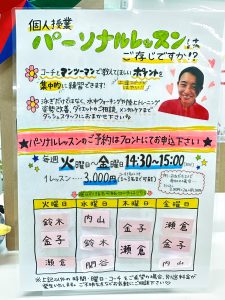 個人授業
パーソナルレッスンは
ご存じですか!?
コーチとマンツーマンで教えてほしいポイントを
集中的に練習できます!
泳ぎだけではなく、水中ウォーキングや陸上トレーニング
姿勢改善、ダイエットのご相談、メンタルケアまで
ダッシュスタッフにおまかせ下さい
★パーソナルレッスンのご予約はフロントにてお申込下さい★
毎週 火曜日〜金曜日 14:30~15:00
1レッスン…3,000円
火曜日 水曜日 木曜日 金曜日
鈴木 内山 金子
金子 鈴木 瀬倉 金子
瀬倉 関谷 内山
※上記以外の時間・曜日・コーチをご希望の場合、別途料金が